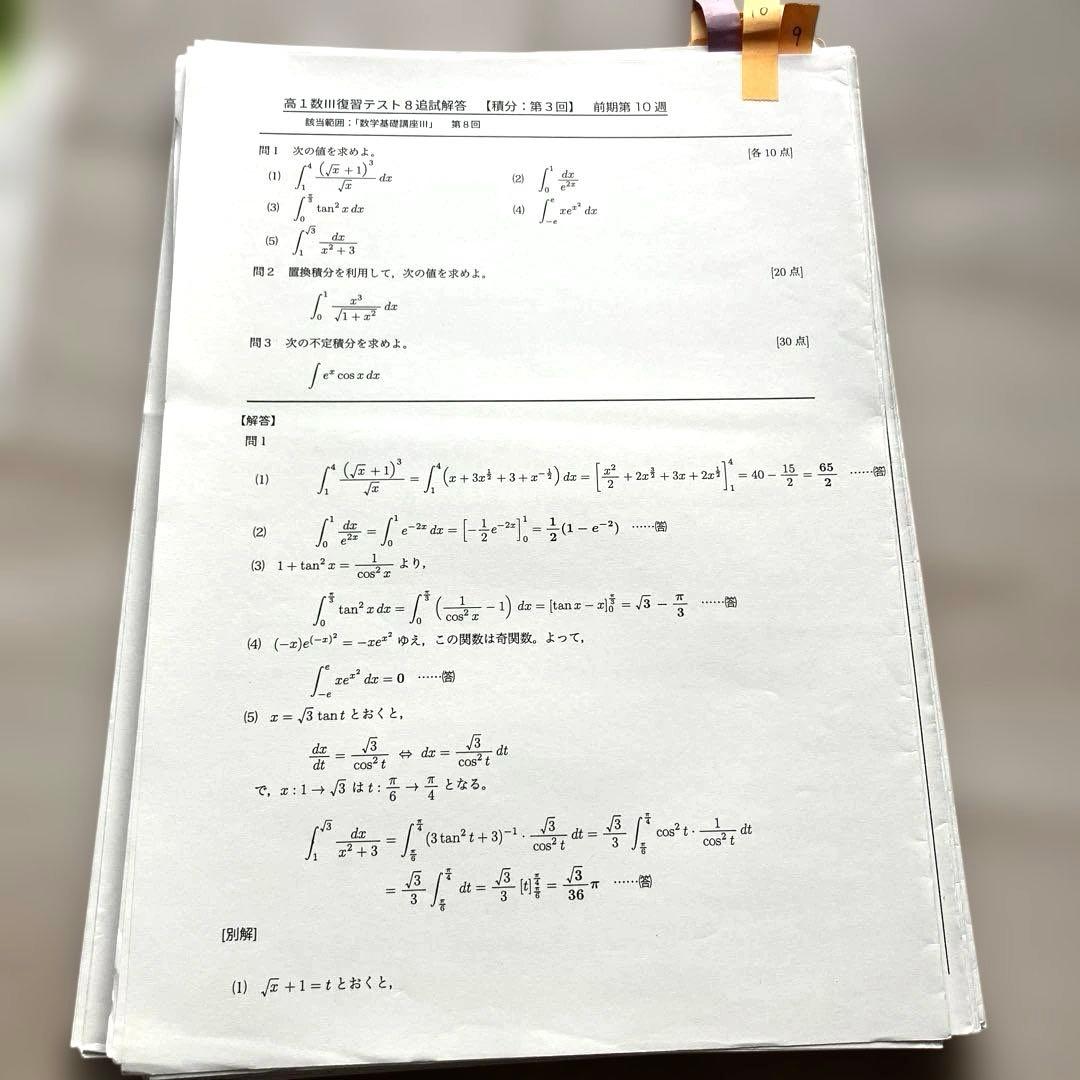 10
9
高1数III復習テスト8追試解答 【積分：第3回】 前期第10週
該当範囲：「数学基礎講座III」 第8回
問1 次の値を求めよ。 [各10点]
(1) ∫₁⁴ (√x + 1)³/√x dx (2) ∫₀¹ dx/e²ˣ
(3) ∫₀^{π/3} tan² x dx (4) ∫₋ₑᵉ xe^{x²} dx
(5) ∫₁^{√3} dx/(x² + 3)
問2 置換積分を利用して，次の値を求めよ。 [20点]
∫₀¹ x³/√(1 + x²) dx
問3 次の不定積分を求めよ。 [30点]
∫ eˣ cos x dx
【解答】
問1
(1) ∫₁⁴ (√x + 1)³/√x = ∫₁⁴ (x + 3x^{1/2} + 3 + x^{-1/2}) dx = [x²/2 + 2x^{3/2} + 3x + 2x^{1/2}]₁⁴ = 40 − 15/2 = 65/2 ……(答)
(2) ∫₀¹ dx/e²ˣ = ∫₀¹ e^{-2x} dx = [−1/2 e^{-2x}]₀¹ = 1/2 (1 − e^{-2}) ……(答)
(3) 1 + tan² x = 1/cos² x より，
∫₀^{π/3} tan² x dx = ∫₀^{π/3} (1/cos² x − 1) dx = [tan x − x]₀^{π/3} = √3 − π/3 ……(答)
(4) (−x)e^{(−x)²} = −xe^{x²} ゆえ，この関数は奇関数。よって，
∫₋ₑᵉ xe^{x²} dx = 0 ……(答)
(5) x = √3 tan t とおくと，
dx/dt = √3/cos² t ⇔ dx = √3/cos² t dt
で，x : 1 → √3 は t : π/6 → π/4 となる。
∫₁^{√3} dx/(x² + 3) = ∫_{π/6}^{π/4} (3 tan² t + 3)⁻¹ · √3/cos² t dt = √3/3 ∫_{π/6}^{π/4} cos² t · 1/cos² t dt
= √3/3 ∫_{π/6}^{π/4} dt = √3/3 [t]_{π/6}^{π/4} = √3/36 π ……(答)
[別解]
(1) √x + 1 = t とおくと，